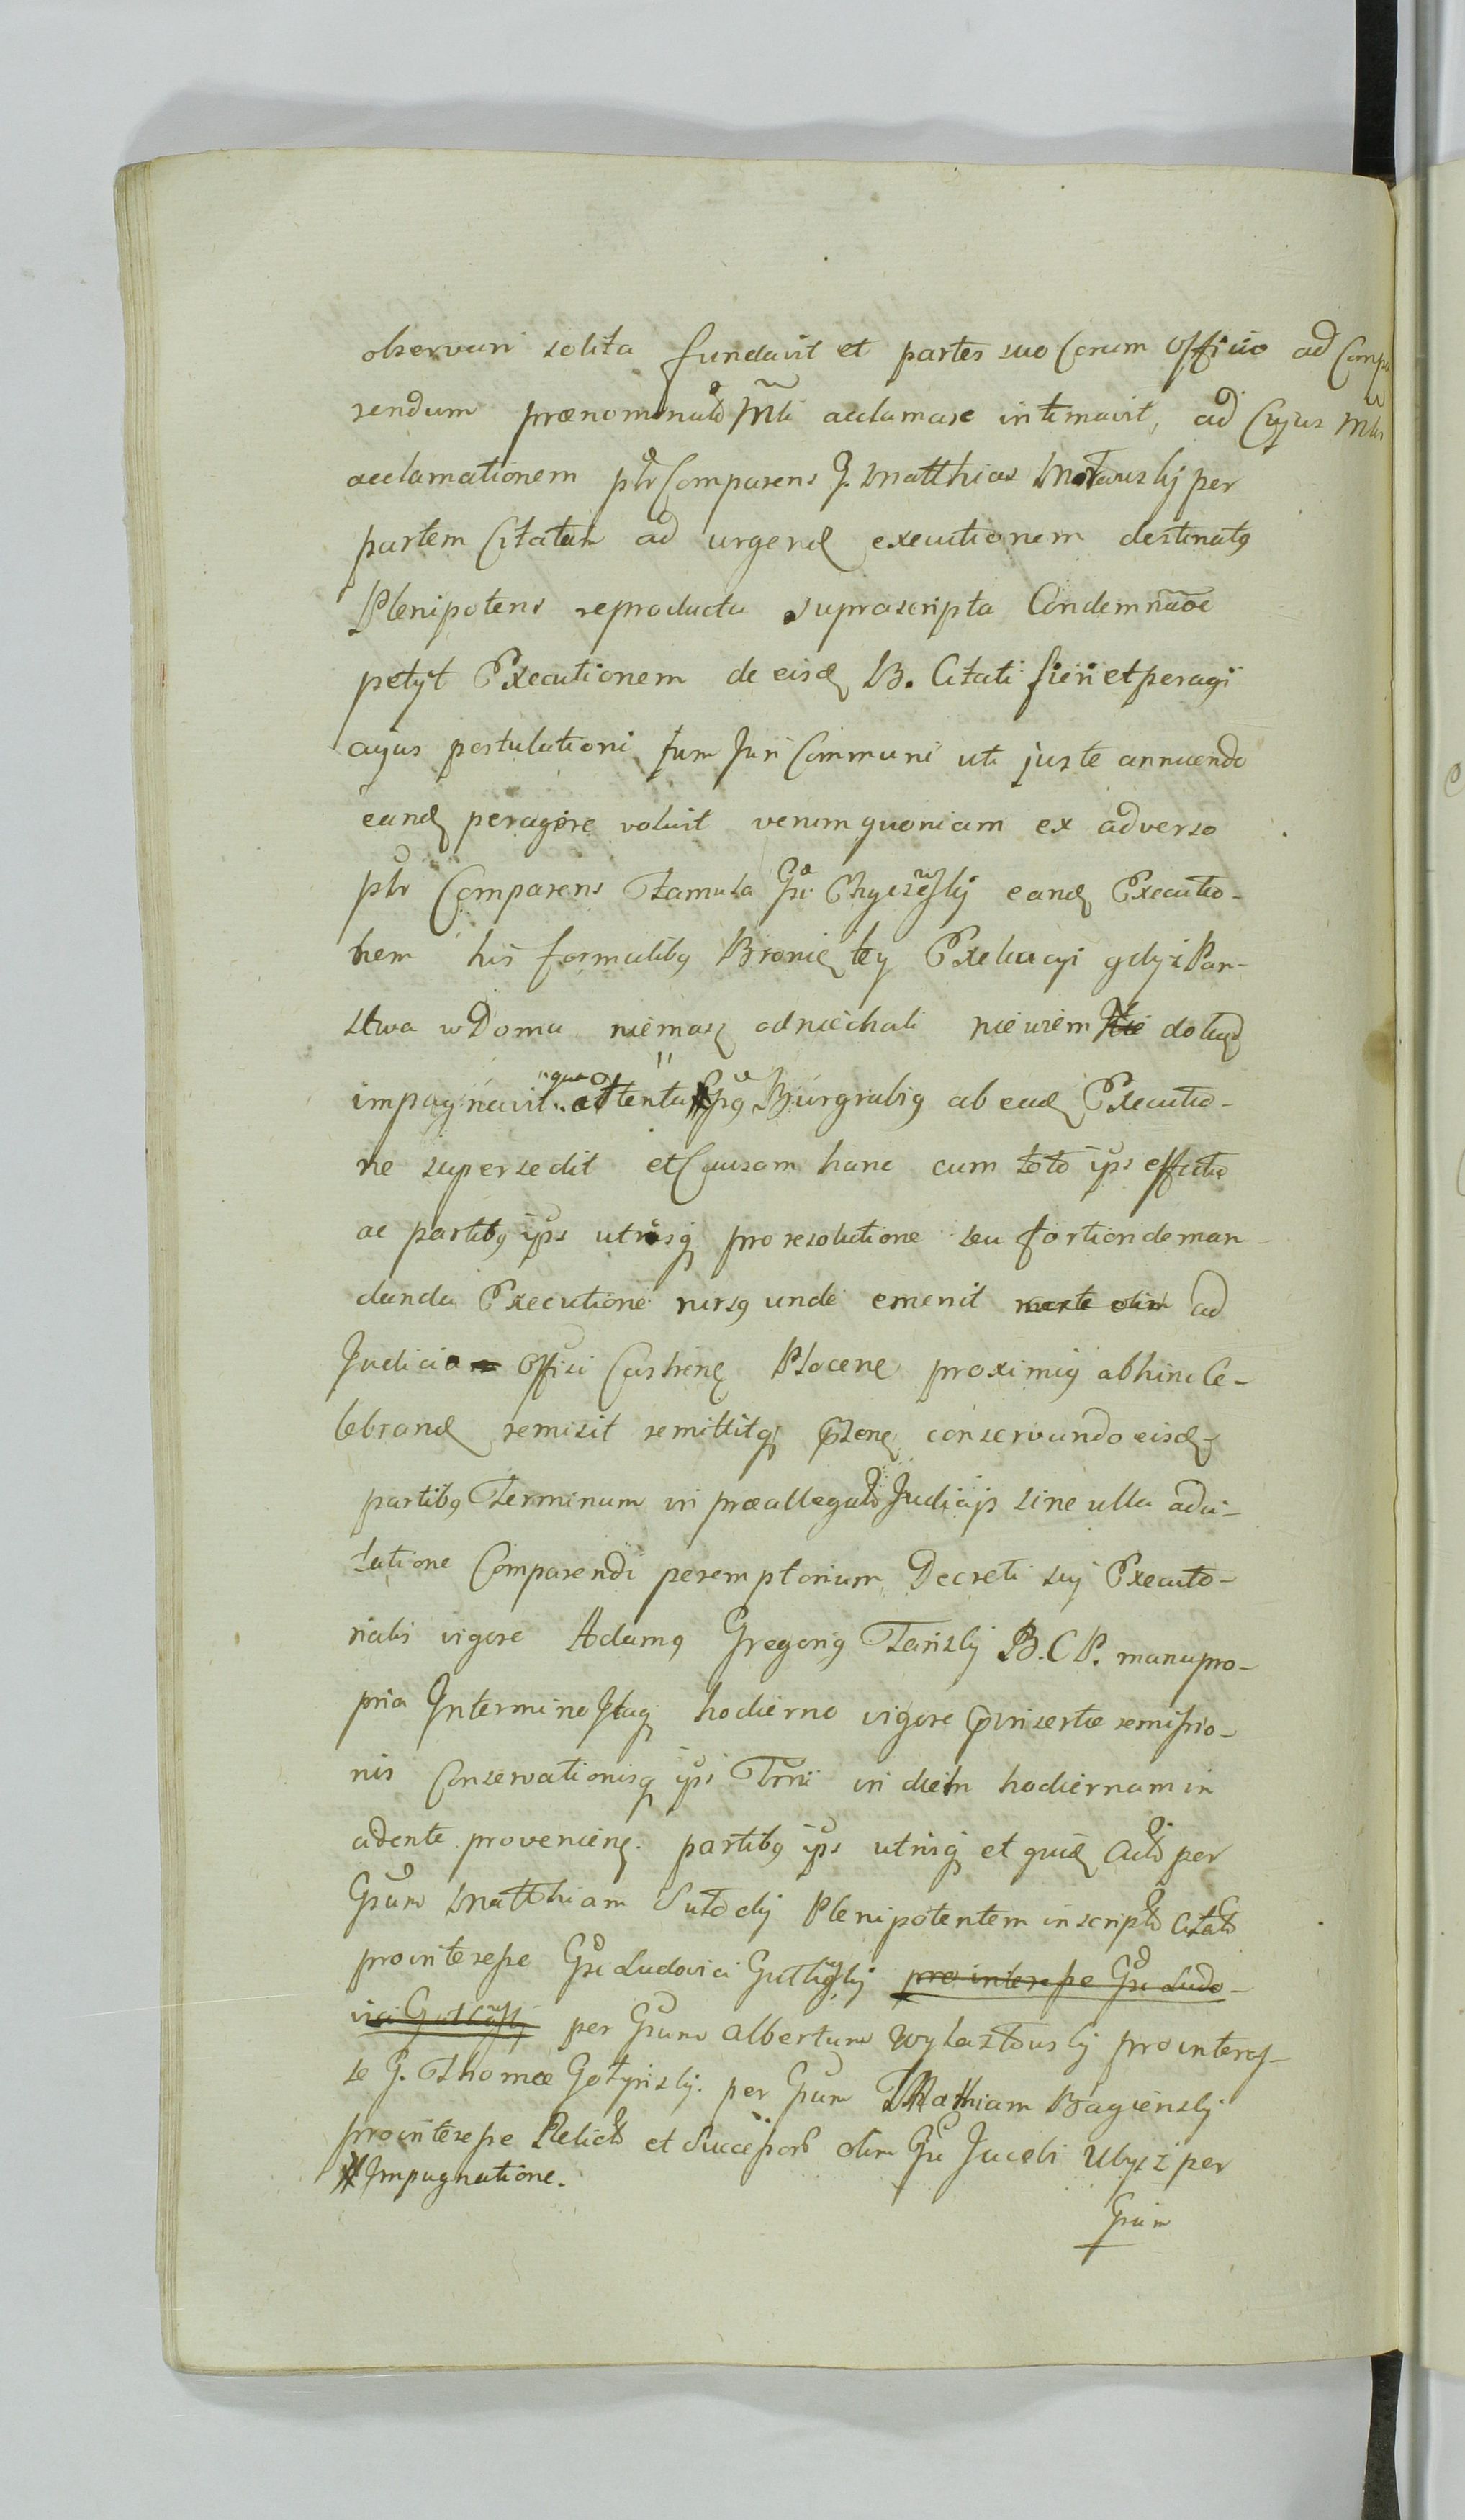 observari solita fundavit et partes suo Coram Officio ad Compa
rendum prænominato Mli acclamare intimavit, ad Cujus Mlis
acclamationem pltr Comparens G. Matthias per
partem Citatam ad urgend executionem destinatq
Plenipotens reproducta suprascripta Condemnaoe
petyt Executionem de eisd B. Citati fieri et peragi
cujus postulationi Jum Juri Communi uti juste annuendo
eand peragere voluit verum quoniam ex adverso
pltr Comparens Famula Gsi eand Executio-
nem his formalibq Bronię tey Exekucyi gdyż Pan-
stwa w Domu niemasz odniechali niewiem dokąd
impugnavit qua attenta Gsq Burgrabiq ab ead Executio-
ne supersedit et Causam hanc cum toto ips effectu
ac partibq ips utrisq pro resolutione seu fortiori deman-
danda Executione rursq unde emerit ad
Judicia Offici Castrens Plocens proximiq abhinc Ce-
lebrand remisit remittitq pnsens conservando eisd
partibq Terminum in præallegato Judicijs sine ulla adci-
tatione Comparendi peremptorium Decreti sui Executo-
rialis vigore Adamq Gregoriq Tański B. C P. manu pro-
pria In termino Itaq hodierno vigore prinsertæ remissio-
nis Conservationisq ipsi Trni in diem hodiernam in
cidente provenienę. partibq ips utrisq et quid Acto per
Gsum Matthiam Plenipotentem inscripto Citato
pro interesse Gsi Ludovici pro interesse Gsi Ludo-
vici per Gsum Albertum pro interes-
se G. Thomæ per Gsum Mathiam Bagieński
pro interesse Relicto et Successorb olim Gsi Jacobi Ubysz per
Impugnatione.
Gsum